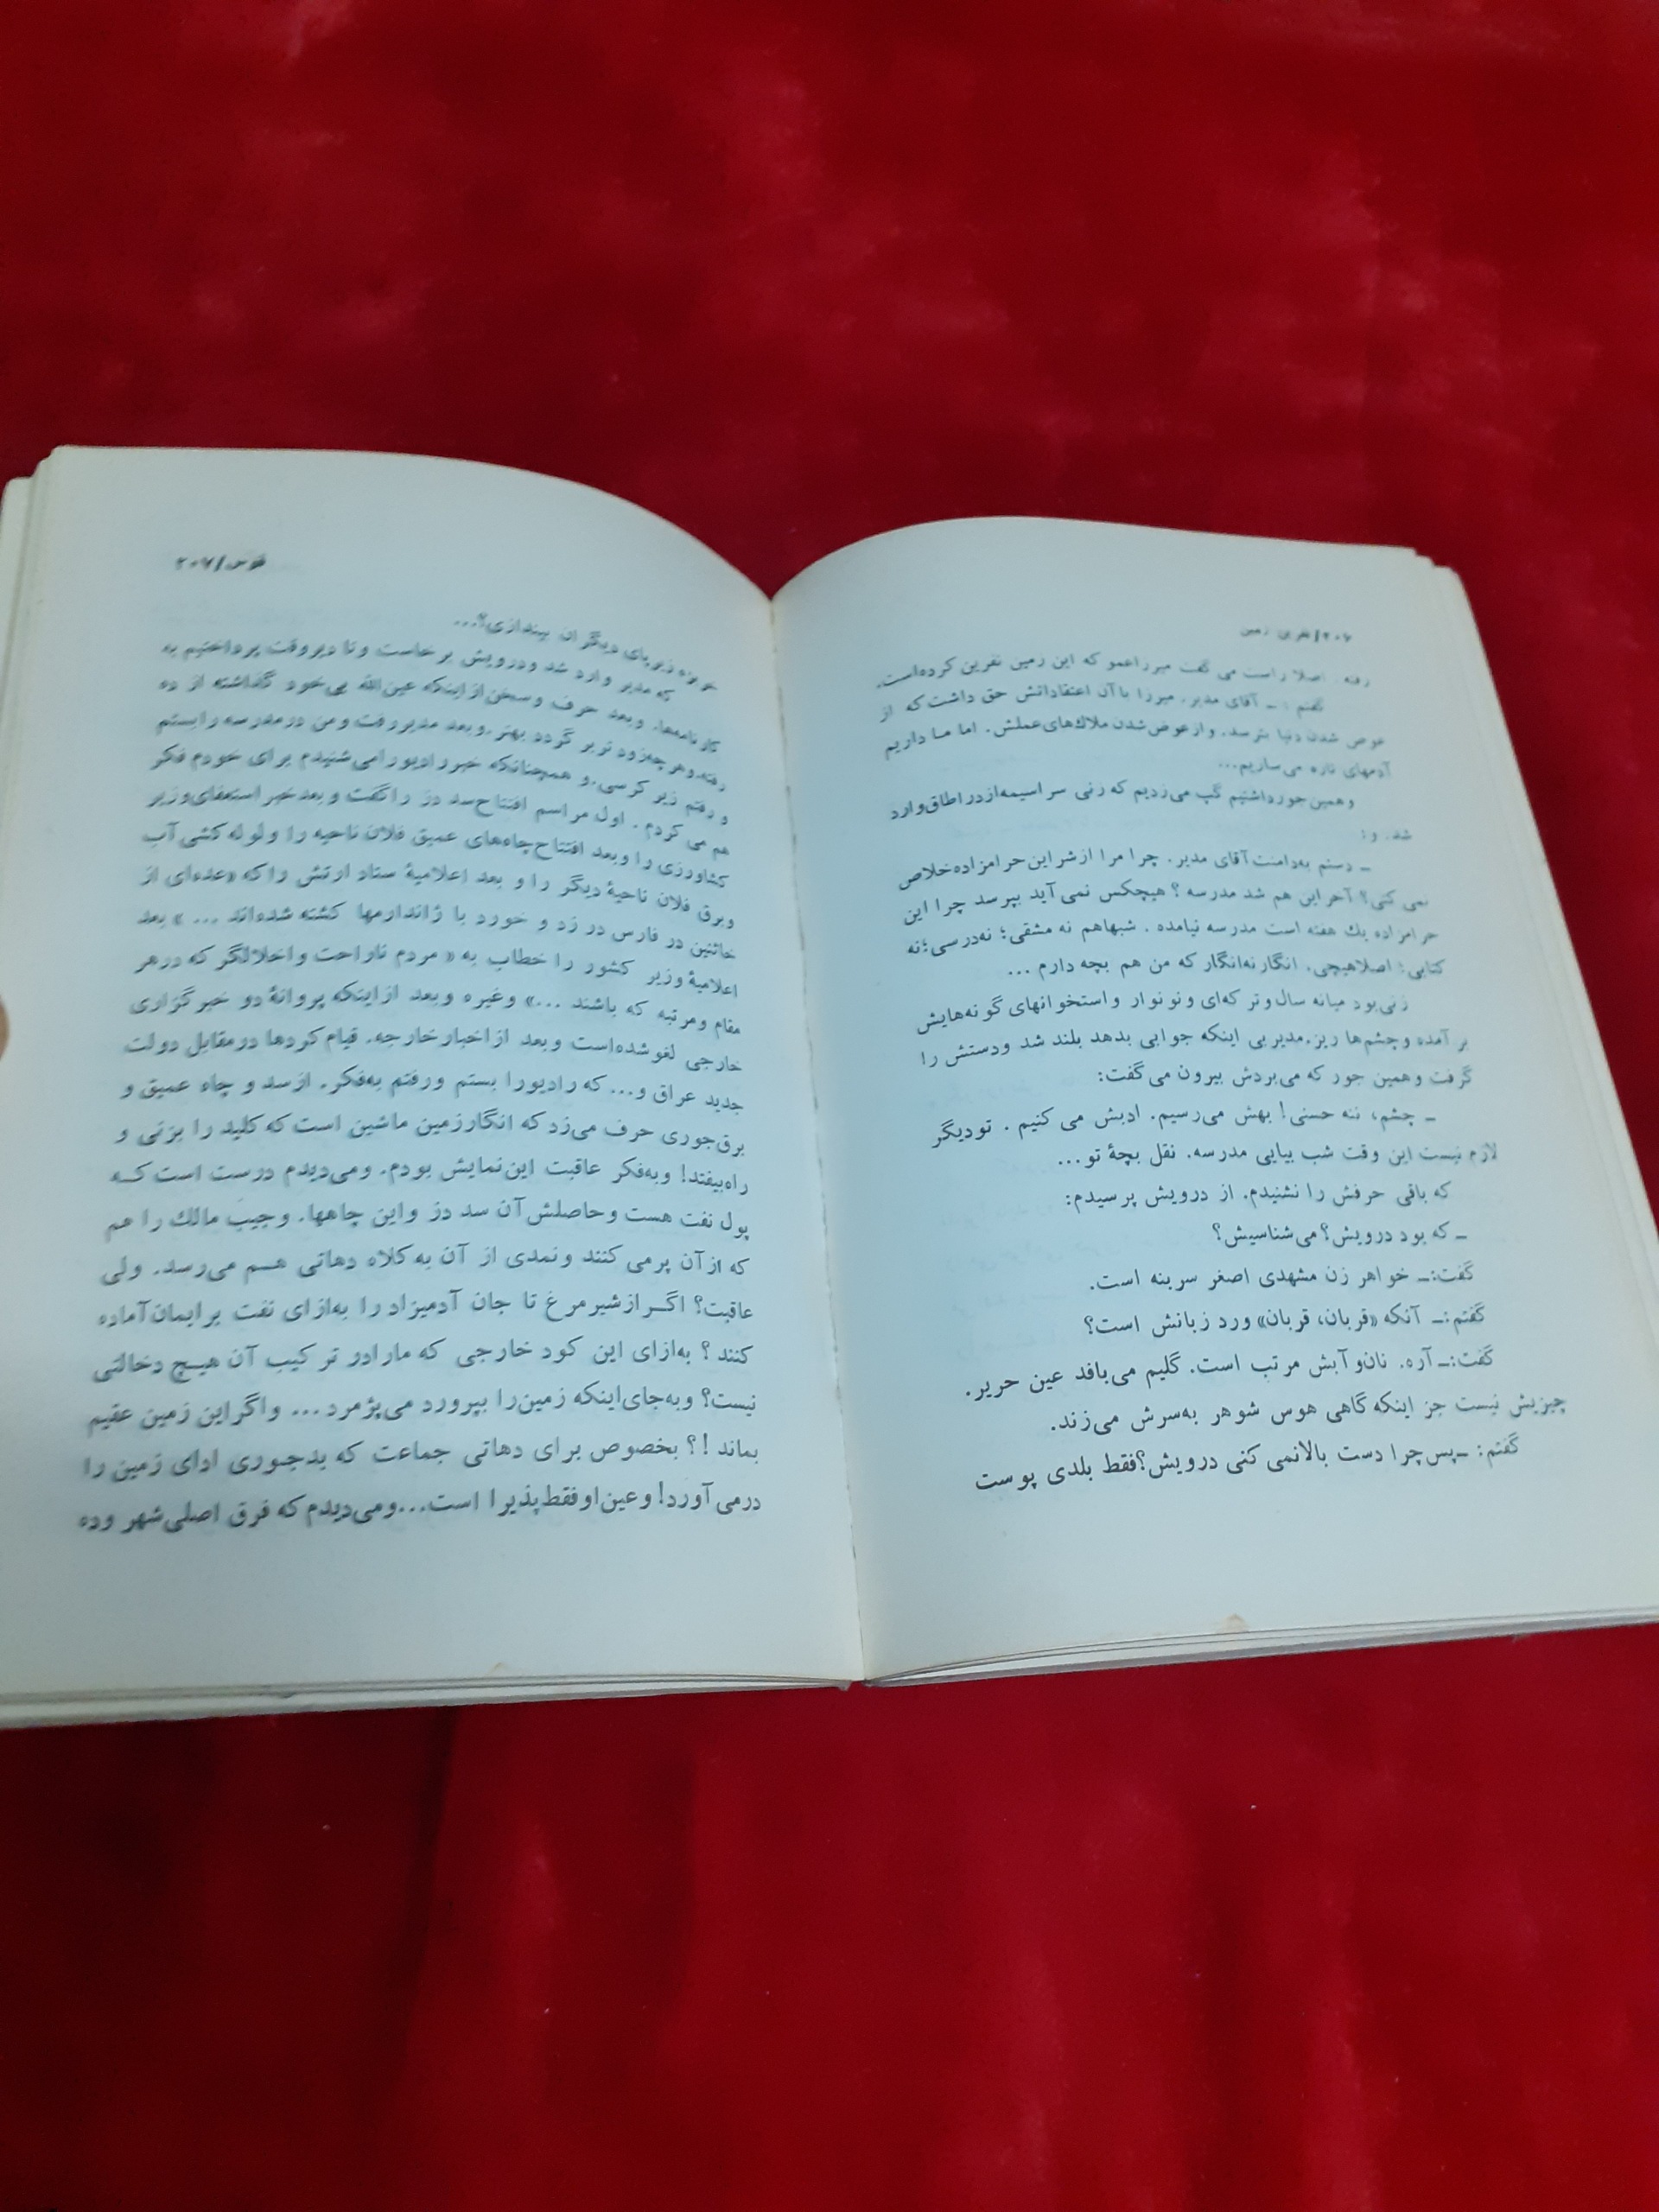 ۲۰۶/نفرین زمین
رفته. اصلا راست می گفت میرزاعمو که این زمین نفرین کرده‌است.
گفتم :ـ آقای مدیر. میرزا با آن اعتقاداتش حق داشت که از
عوض شدن دنیا بترسد. و از عوض شدن ملاك‌های عملش. اما ما داریم
آدمهای تازه می‌سازیم...
وهمین جور داشتیم گپ می‌زدیم که زنی سراسیمه از در اطاق وارد
شد. و:
ـ دستم به‌دامنت آقای مدیر. چرا مرا از شر این حرامزاده خلاص
نمی کنی؟ آخر این هم شد مدرسه ؟ هیچکس نمی آید بپرسد چرا این
حرامزاده یك هفته است مدرسه نیامده . شبهاهم نه مشقی؛ نه‌درسی؛ نه
کتابی؛ اصلاهیچی. انگار نه‌انگار که من هم بچه دارم ...
زنی‌بود میانه سال‌وتر که‌ای ونونوار واستخوانهای گونه‌هایش
بر آمده وچشم‌ها ریز. مدیر بی اینکه جوابی بدهد بلند شد ودستش را
گرفت وهمین جور که می‌بردش بیرون می‌گفت:
ـ چشم، ننه حسنی! بهش می‌رسیم. ادبش می کنیم . تودیگر
لازم نیست این وقت شب بیایی مدرسه. نقل بچهٔ تو...
که باقی حرفش را نشنیدم. از درویش پرسیدم:
ـ که بود درویش؟ می‌شناسیش؟
گفت:ـ خواهر زن مشهدی اصغر سربنه است.
گفتم:ـ آنکه «قربان، قربان» ورد زبانش است؟
گفت:ـ آره. نان‌و آبش مرتب است. گلیم می‌بافد عین حریر.
چیزیش نیست جز اینکه گاهی هوس شوهر به‌سرش می‌زند.
گفتم: ـ پس چرا دست بالانمی کنی درویش؟ فقط بلدی پوست
قوس/۲۰۷
خربزه زیرپای دیگران بیندازی؟...
که مدیر وارد شد ودرویش برخاست وتا دیروقت پرداختیم به
کارنامه‌ها. وبعد حرف وسخن از اینکه عین‌الله بی‌خود گذاشته از ده
رفته وهرچه‌زودتر بر گردد بهتر. وبعد مدیررفت ومن درمدرسه رابستم
و رفتم زیر کرسی. و همچنانکه خبررادیورامی‌شنیدم برای خودم فکر
هم می کردم . اول مراسم افتتاح‌سد دز را گفت و بعد خبر استعفای‌وزیر
کشاورزی را وبعد افتتاح‌چاه‌های عمیق فلان ناحیه را ولوله کشی آب
وبرق فلان ناحیهٔ دیگر را و بعد اعلامیهٔ ستاد ارتش راکه «عده‌ای از
خائنین در فارس در زد و خورد با ژاندارمها کشته شده‌اند ... » بعد
اعلامیهٔ وزیر کشور را خطاب به « مردم ناراحت واخلالگر که درهر
مقام ومرتبه که باشند ...» وغیره وبعد ازاینکه پروانهٔ دو خبرگزاری
خارجی لغو شده‌است وبعد ازاخبارخارجه. قیام کردها درمقابل دولت
جدید عراق و... که رادیورا بستم ورفتم به‌فکر. ازسد و چاه عمیق و
برق‌جوری حرف می‌زد که انگارزمین ماشین است که کلید را بزنی و
راه‌بیفتد! وبه‌فکر عاقبت این‌نمایش بودم. ومی‌دیدم درست است کـه
پول نفت هست وحاصلش آن سد دز واین چاهها. وجیب مالك را هم
که ازآن پرمی کنند ونمدی از آن به‌کلاه دهاتی هـم می‌رسد. ولی
عاقبت؟ اگـر ازشیر مرغ تا جان آدمیزاد را به‌ازای نفت برایمان‌آماده
کنند ؟ به‌ازای این کود خارجی که مارادر ترکیب آن هیـچ دخالتی
نیست؟ وبه‌جای‌اینکه زمین‌را بپرورد می‌پژمرد... واگراین زمین عقیم
بماند !؟ بخصوص برای دهاتی جماعت که بدجـوری ادای زمین را
درمی‌آورد! وعین‌اوفقط‌پذیرا است...ومی‌دیدم که فرق اصلی‌شهر وده